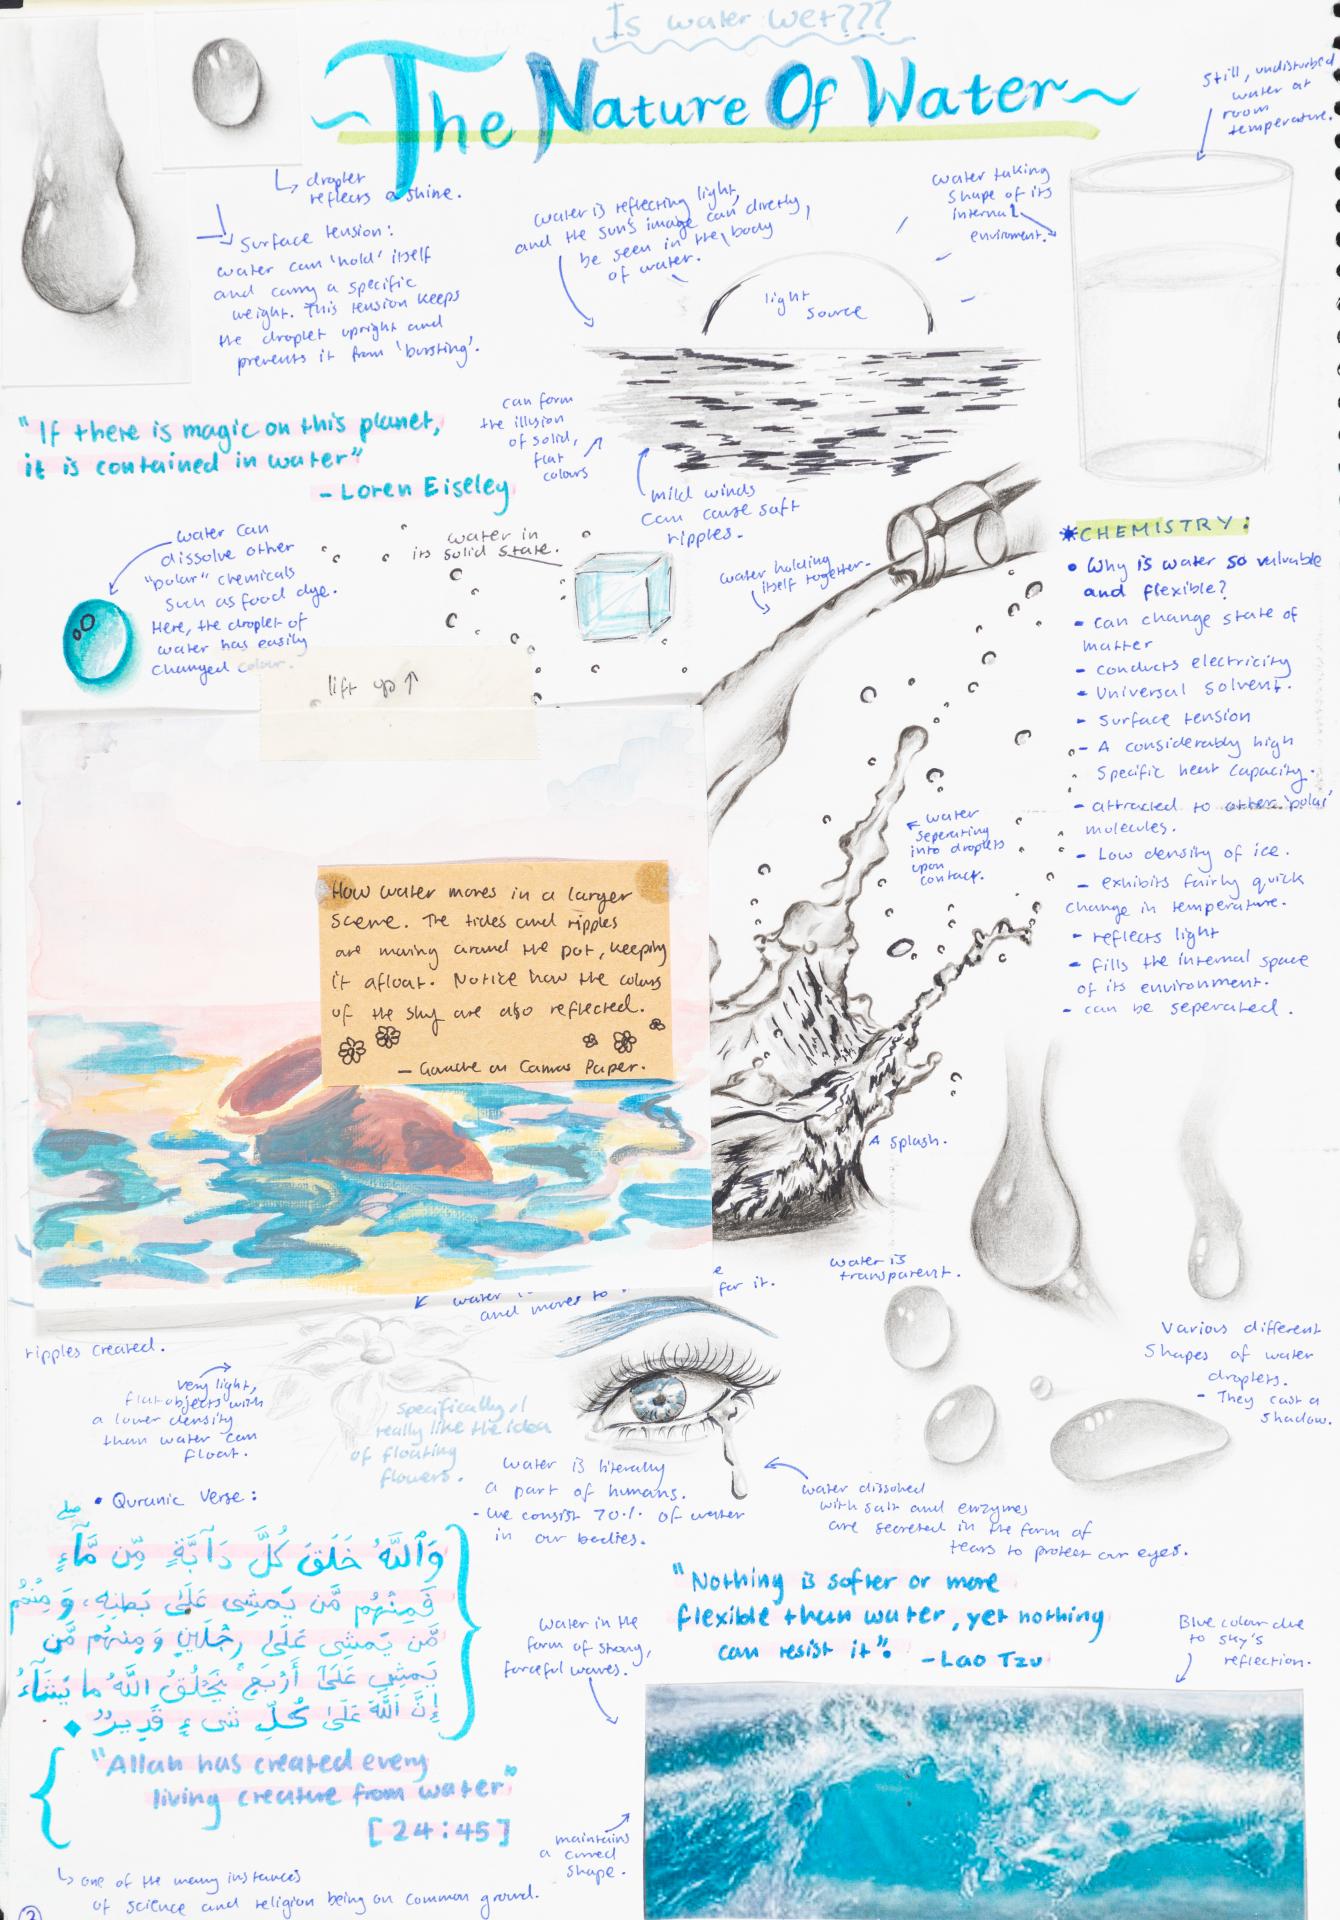 Is water wet???
~The Nature Of Water~
Still, undisturbed
water at
room
temperature.
↳ droplet
reflects a shine.
Surface tension:
water can 'hold' itself
and carry a specific
weight. This tension keeps
the droplet upright and
prevents it from 'bursting'.
water is reflecting light,
and the sun's image can directly,
be seen in the body
of water.
water taking
shape of its
internal
enviroment.
light
source
can form
the illusion
of solid,
flat
colours
mild winds
can cause soft
ripples.
"If there is magic on this planet,
it is contained in water"
- Loren Eiseley
water can
dissolve other
"polar" chemicals
such as food dye.
Here, the droplet of
water has easily
changed colour.
water in
its solid state.
water holding
itself together.
*CHEMISTRY:
• Why is water so valuable
and flexible?
- can change state of
matter
- conducts electricity
- Universal solvent.
- surface tension
- A considerably high
specific heat capacity.
- attracted to other 'polar'
molecules.
- Low density of ice.
- exhibits fairly quick
change in temperature.
- reflects light
- fills the internal space
of its environment.
- can be seperated.
lift up ↑
water
seperating
into droplets
upon
contact.
How water moves in a larger
scene. The tides and ripples
are moving around the pot, keeping
it afloat. Notice how the colours
of the sky are also reflected.
- Gouache on Canvas Paper.
A splash.
water is
transparent.
water
and moves to
for it.
ripples created.
very light,
flat objects with
a lower density
than water can
float.
specifically, I
really like the idea
of floating
flowers.
Various different
shapes of water
droplets.
- They cast a
shadow.
water is literally
a part of humans.
- we consist 70% of water
in our bodies.
water dissolved
with salt and enzymes
are secreted in the form of
tears to protect our eyes.
• Quranic Verse:
وَٱللَّهُ خَلَقَ كُلَّ دَآبَّةٍ مِّن مَّآءٍ ۖ
فَمِنْهُم مَّن يَمْشِى عَلَىٰ بَطْنِهِۦ وَمِنْهُم
مَّن يَمْشِى عَلَىٰ رِجْلَيْنِ وَمِنْهُم مَّن
يَمْشِى عَلَىٰٓ أَرْبَعٍ ۚ يَخْلُقُ ٱللَّهُ مَا يَشَآءُ
إِنَّ ٱللَّهَ عَلَىٰ كُلِّ شَىْءٍ قَدِيرٌ
"Allah has created every
living creature from water"
[24:45]
↳ one of the many instances
of science and religion being on common ground.
"Nothing is softer or more
flexible than water, yet nothing
can resist it".
- Lao Tzu
water in the
form of strong,
forceful waves.
Blue colour due
to sky's
reflection.
maintains
a curved
shape.